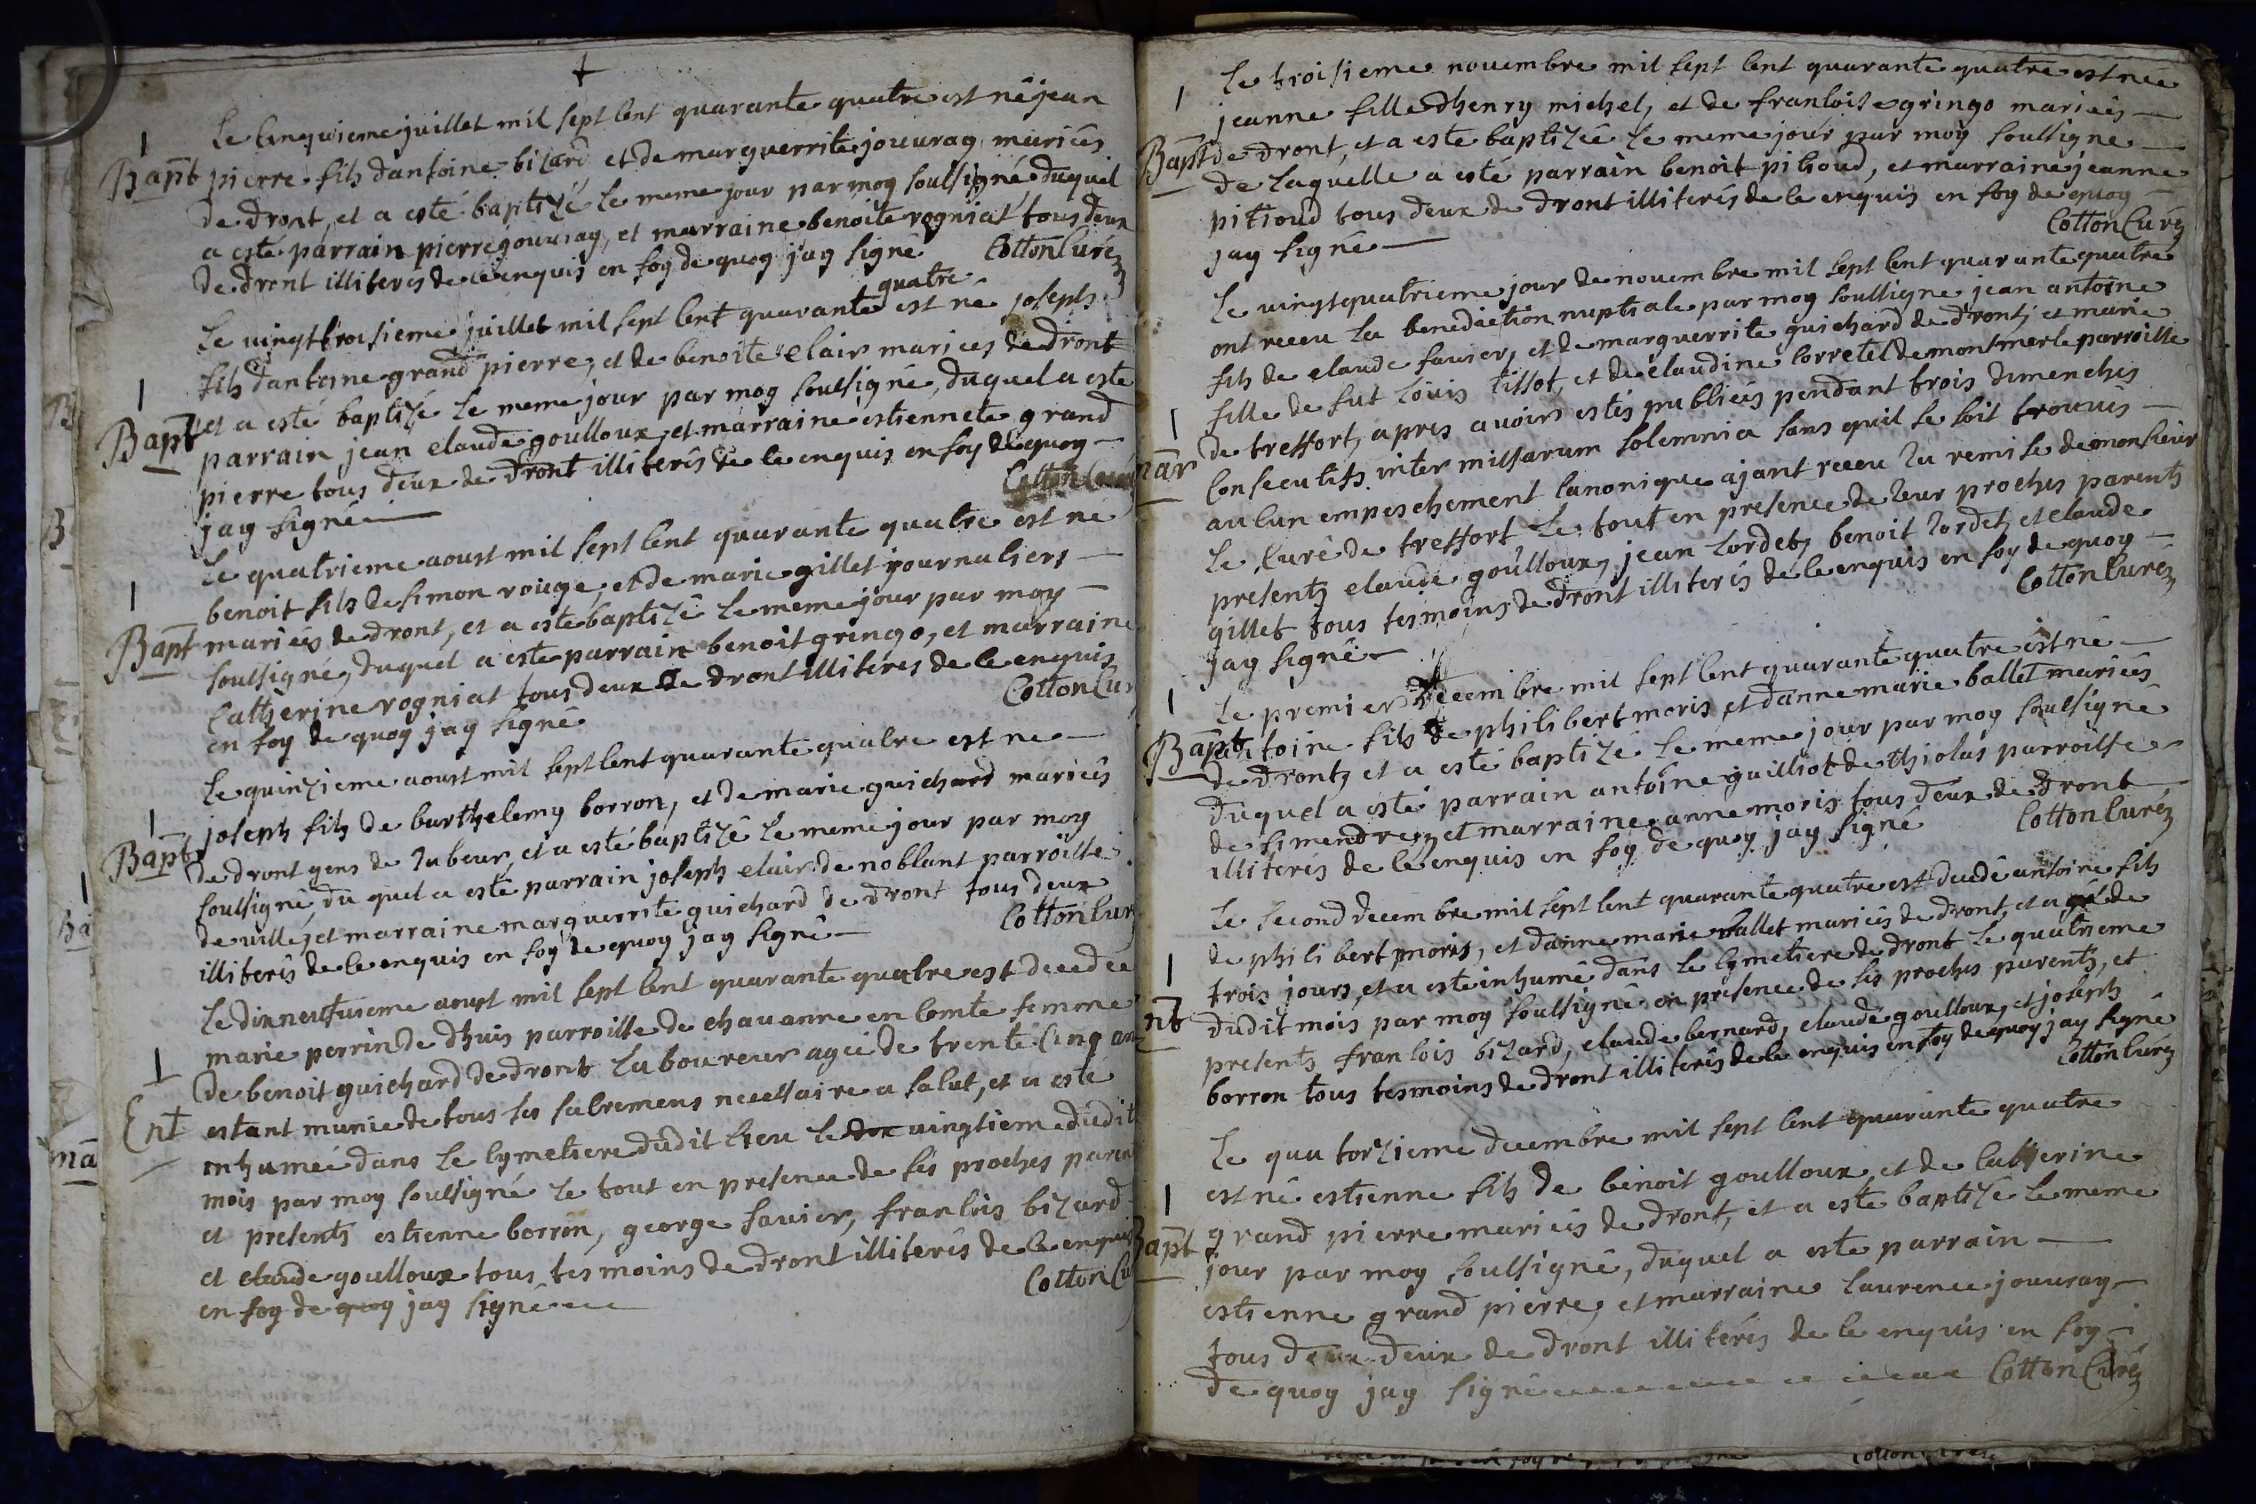 Le Cinquieme juillet mil sept cent quarante quatre est né jean
Bapt pierre fils dantoine bizard et de marguerrite jouuray mariées
de dront, et a esté baptizé le meme jour par moy soulsigné, duquel
a esté parrain pierre jouuray, et marraine benoite rogniat tous deux
de dront illiterés de ce enquis en foy de quoy jay signé Cotton Curéz
quatre
Le vingt troisieme juillet mil sept cent quarante est né joseph
fils dantoine grand pierre, et de benoite clair mariees de dront
Bapt et a esté baptizé le meme jour par moy soulsigné, duquel a esté
parrain jean claude goulloux, et marraine estiennete grand
pierre tous deux de dront illiterés de ce enquis en foy de quoy
jay signé Cotton
Le quatrieme aoust mil sept cent quarante quatre est né
benoit fils de simon rouge, et de marie gillet journaliers
Bapt mariées de dront, et a esté baptizé le meme jour par moy
soulsigné, duquel a esté parrain benoit gringo, et marraine
Catherine rogniat tous deux de dront illiterés de ce enquis
en foy de quoy jay signé Cotton Cur
Le quinzieme aoust mil sept cent quarante quatre est né
joseph fils de barthelemy borron, et de marie guichard mariées
Bapt de dront gens de labeur, et a esté baptizé le meme jour par moy
soulsigné, du quel a esté parrain joseph clair de noblant parroisse
de ville, et marraine marguerrite guichard de dront tous deux
illiterés de ce enquis en foy de quoy jay signé Cotton Cur
Le dixneufuieme aoust mil sept cent quarante quatre est decedee
marie perrin de dhuis parroisse de chauanne en comte femme
de benoit guichard de dront laboureur agée de trente Cinq an
Ent estant munie de tous les sacremens necessaire a salut, et a esté
inhumée dans le cymetiere dudit lieu le vingtieme dudit
mois par moy soulsigné le tout en presence de ses proches paren
et presents estienne borron, george fauier, francois bizard
et claude goulloux tous tesmoins de dront illiterés de ce enquis
en foy de quoy jay signé Cotton Cu
Le troisieme nouembre mil sept cent quarante quatre est née
jeanne fille dhenry michel, et de francoise gringo mariées
Bapt de dront, et a esté baptizée le meme jour par moy soulsigné
de laquelle a esté parrain benoit pitioud, et marraine jeanne
pitioud tous deux de dront illiterés de ce enquis en foy de quoy
jay signé Cotton Curéz
Le vingtquatrieme jour de nouembre mil sept cent quarante quatre
ont receu la benediction nuptiale par moy soulsigné jean antoine
fils de claude fauier, et de marguerrite guichard de dront, et marie
fille de fut louis tissot, et de claudine corretel de montmerle parroisse
de treffort, apres auoirs estés publiées pendant trois dimenches
mar Consecutifs inter missarum solemnia sans quil se soit trouués
aucun empeschement canonique ajant receu la remise de monsieur
le Curé de treffort le tout en presence de leur proches parents
presents claude goulloux, jean lordet, benoit lordet, et claude
gillet tous tesmoins de dront illiterés de ce enquis en foy de quoy
jay signé Cotton Curéz
Le premier decembre mil sept cent quarante quatre est né
Bapt antoine fils de philibert moris, et danne marie ballet mariées
de dront, et a esté baptizé le meme jour par moy soulsigné
duquel a esté parrain antoine guilliot de thiolas parroisse
de simendrez, et marraine anne moris tous deux de dront
illiterés de ce enquis en foy de quoy jay signé Cotton Curéz
Le second decembre mil sept cent quarante quatre est decedé antoine fils
de philibert moris, et danne marie ballet mariées de dront, et agé de
trois jours, et a esté inhumé dans le cymetiere de dront le quatrieme
nt dudit mois par moy soulsigné en presence de ses proches parents, et
presents francois bizard, claude bernard, claude goulloux, et joseph
borron tous tesmoins de dront illiterés de ce enquis en foy de quoy jay signé
Cotton Curéz
Le quatorzieme decembre mil sept cent quarante quatre
est né estienne fils de benoit goulloux, et de Catherine
Bapt grand pierre mariées de dront, et a esté baptizé le meme
jour par moy soulsigné, duquel a esté parrain
estienne grand pierre, et marraine laurence jouuray
tous deux deux de dront illiterés de ce enquis en foy
de quoy jay signé Cotton Curéz